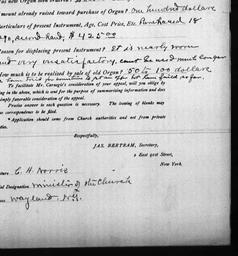 amount already raised toward purchase of Organ? One hundred dollars
Particulars of present Instrument, Age, Cost Price, Etc. Purchased 18
ago, second hand, $425.00
Reason for displacing present Instrument? It is nearly worn
and very unsatisfactory, cannot be used much longer
How much is to be realized by sale of old Organ? 50 to 100 dollars
To facilitate Mr. Carnegie's consideration of your appeal, will you oblige by
in the above, which is end for the purpose of summarizing information and does
imply favorable consideration of the appeal.
Precise answer to each question is necessary. The leaving of blanks may
correspondence to be required.
"Application should come from Church authorities and not from private
Respectfully,
JAS. BERTRAM, Secretary,
2 East 91st Street,
New York.
C. H. Norris
Official Designation Minister of the Church
Wayland N.Y.